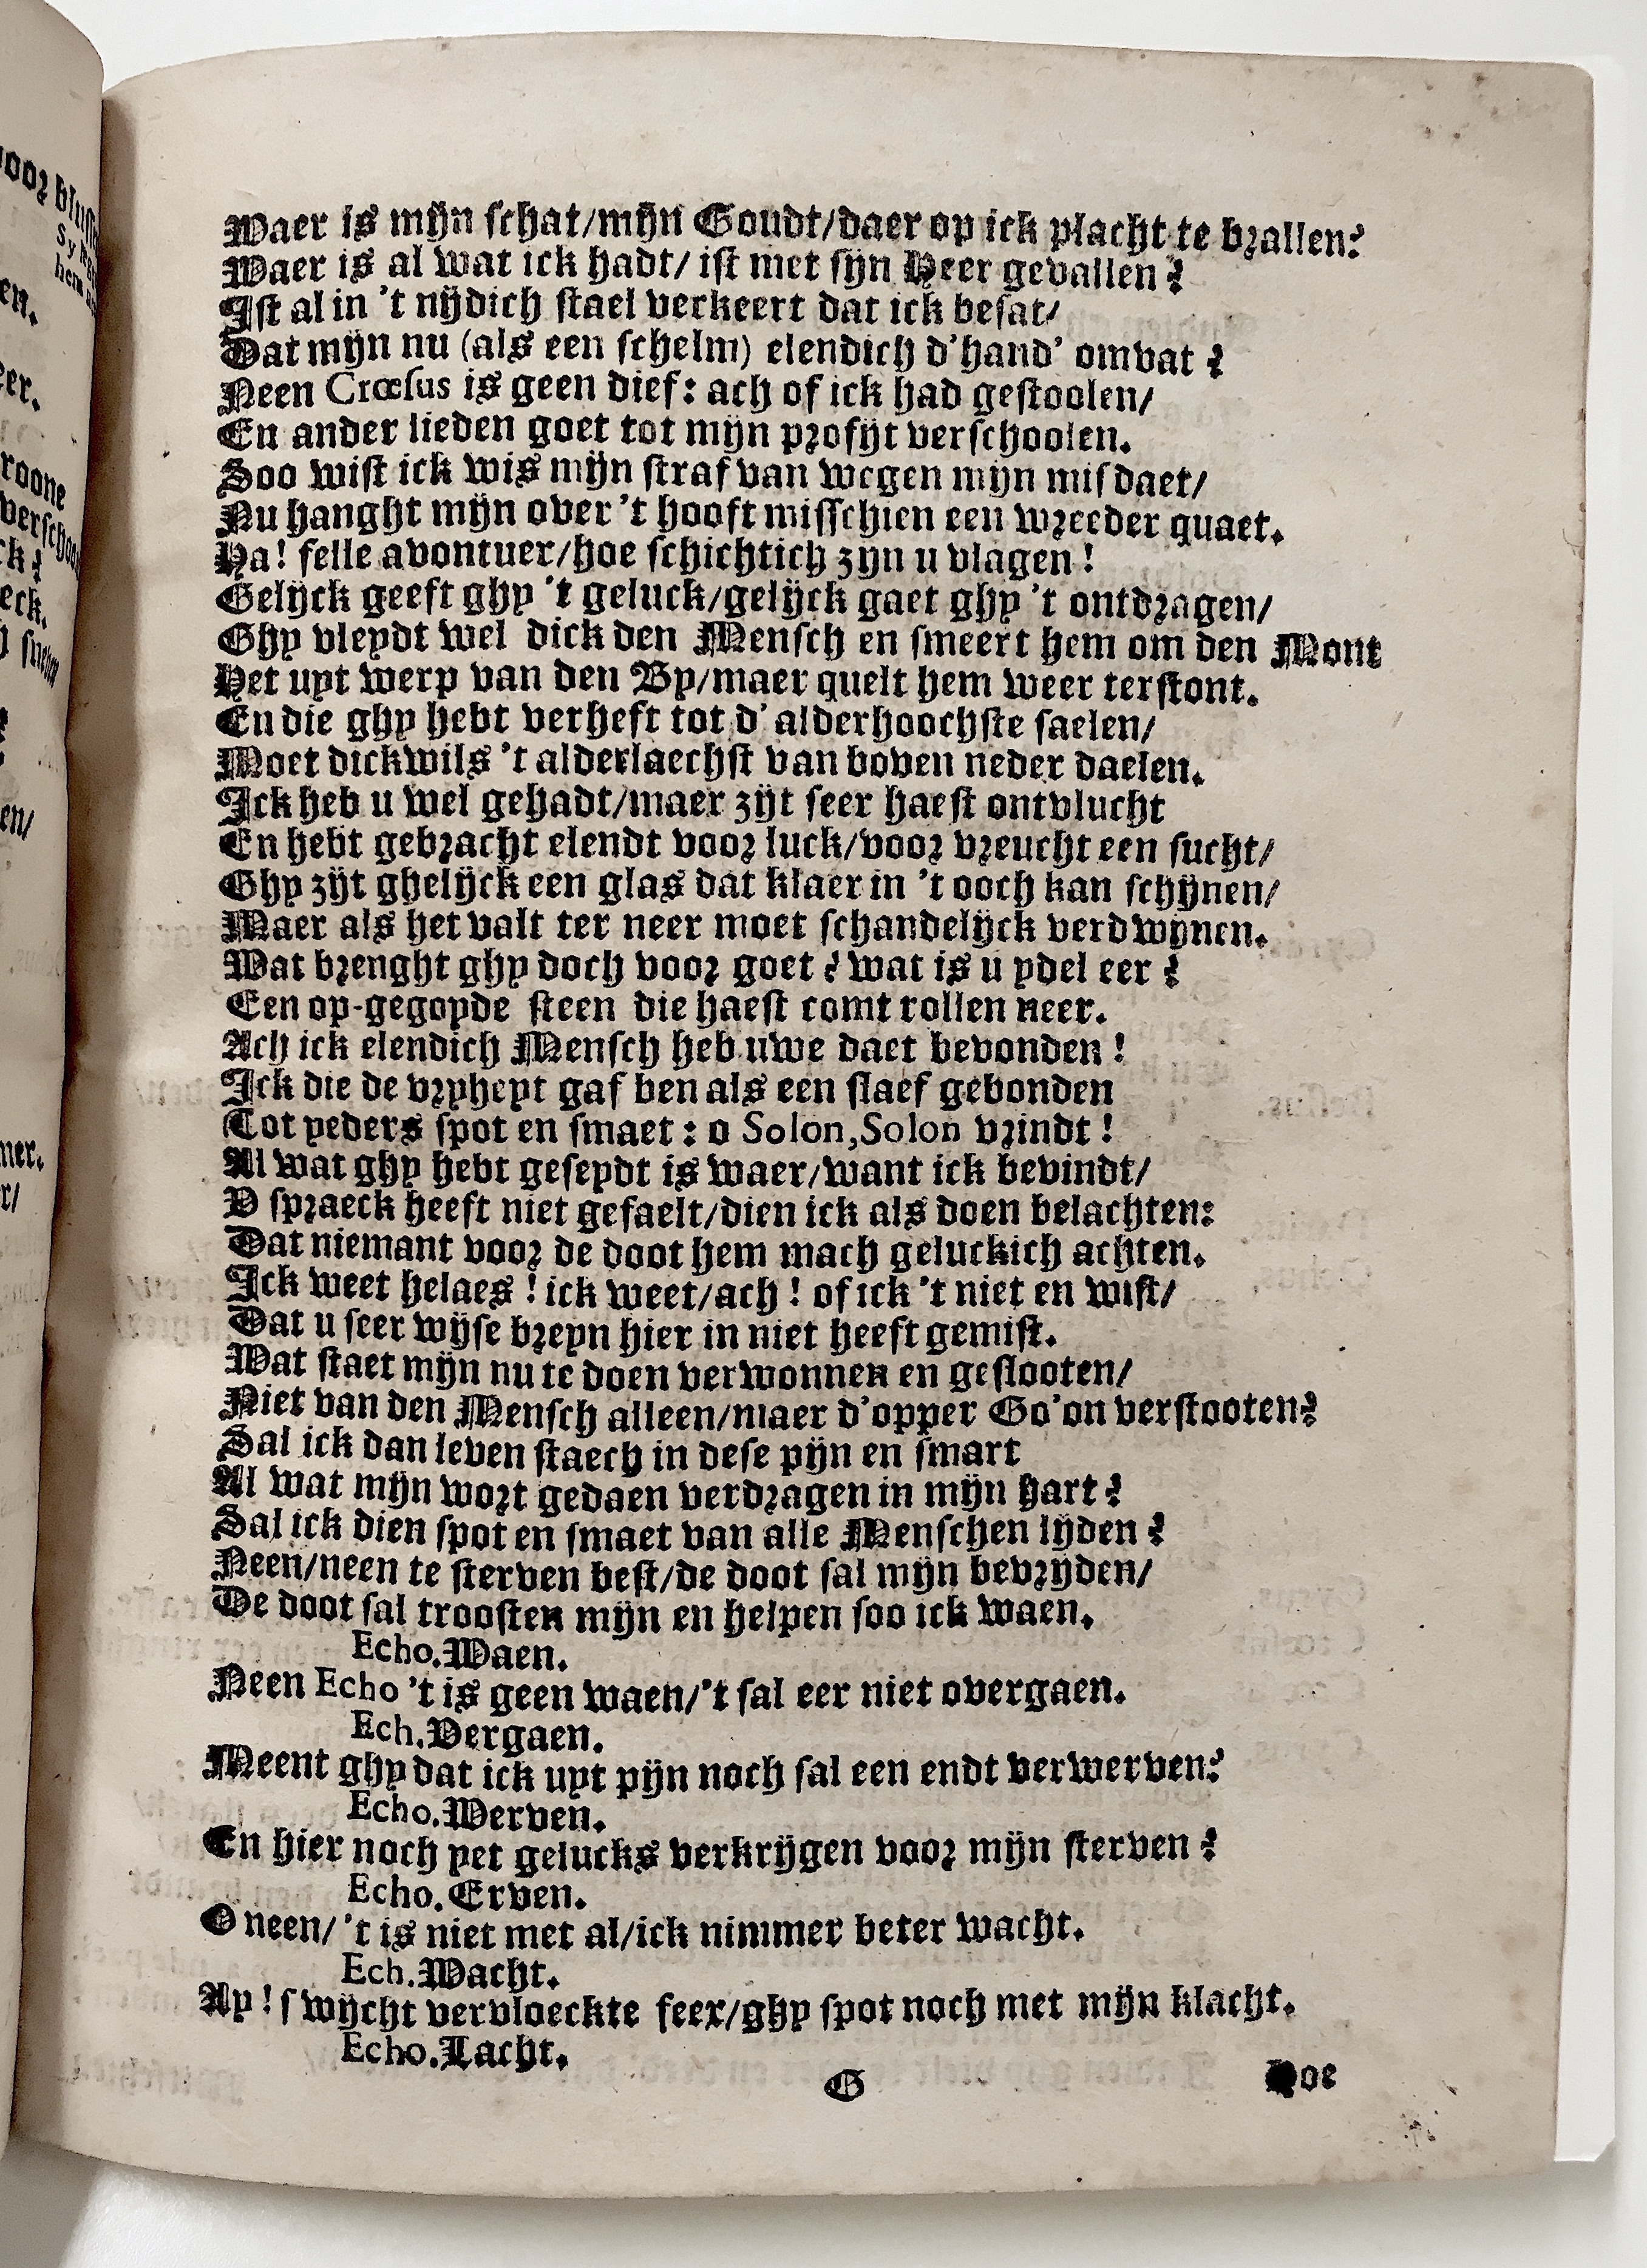 Waer is mijn schat/mijn Goudt/daer op ick placht te brallen?
Waer is al wat ick hadt/ ist met sijn Heer gevallen?
Ist al in 't nijdich stael verkeert dat ick besat/
Dat mijn nu (als een schelm) elendich d'hand' omvat?
Neen Crœsus is geen dief: ach of ick had gestoolen/
En ander lieden goet tot mijn profijt verschoolen.
Soo wist ick wis mijn straf van wegen mijn misdaet/
Nu hanght mijn over 't hooft misschien een wreeder quaet.
Ha! felle avontuer/hoe schichtich zijn u vlagen!
Gelijck geeft ghy 't geluck/gelijck gaet ghy 't ontdragen/
Ghy vleydt wel dick den Mensch en smeert hem om den Mont
Het uyt werp van den By/maer quelt hem weer terstont.
En die ghy hebt verheft tot d' alderhoochste saelen/
Moet dickwils 't alderlaechst van boven neder daelen.
Ick heb u wel gehadt/maer zijt seer haest ontvlucht
En hebt gebracht elendt voor luck/voor vreucht een sucht/
Ghy zijt ghelijck een glas dat klaer in 't ooch kan schijnen/
Maer als het valt ter neer moet schandelijck verdwijnen.
Wat brenght ghy doch voor goet? wat is u ydel eer?
Een op-gegoyde steen die haest comt rollen neer.
Ach ick elendich Mensch heb uwe daet bevonden!
Ick die de vryheyt gaf ben als een slaef gebonden
Tot yeders spot en smaet: o Solon, Solon vrindt!
Al wat ghy hebt geseydt is waer/want ick bevindt/
V spraeck heeft niet gefaelt/dien ick als doen belachten:
Dat niemant voor de doot hem mach geluckich achten.
Ick weet helaes! ick weet/ach! of ick 't niet en wist/
Dat u seer wijse breyn hier in niet heeft gemist.
Wat staet mijn nu te doen verwonnen en geslooten/
Niet van den Mensch alleen/maer d'opper Go'on verstooten?
Sal ick dan leven staech in dese pijn en smart
Al wat mijn wort gedaen verdragen in mijn hart?
Sal ick dien spot en smaet van alle Menschen lijden?
Neen/neen te sterven best/de doot sal mijn bevrijden/
De doot sal troosten mijn en helpen soo ick waen.
Echo. Waen.
Neen Echo 't is geen waen/'t sal eer niet overgaen.
Ech. Vergaen.
Meent ghy dat ick uyt pijn noch sal een endt verwerven?
Echo. Werven.
En hier noch yet gelucks verkrijgen voor mijn sterven?
Echo. Erven.
O neen/ 't is niet met al/ick nimmer beter wacht.
Ech. Wacht.
Ay! swijcht vervloeckte feex/ghy spot noch met mijn klacht.
Echo. Lacht.
G
Hoe